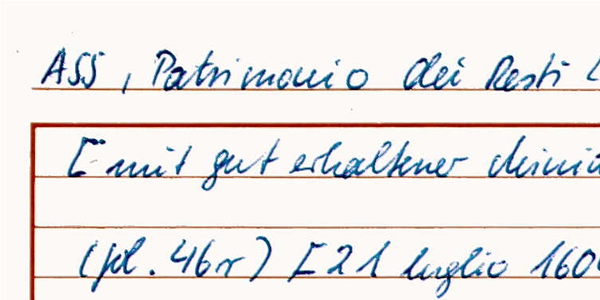 ASS, Patrimonio dei Resti
[mit gut erhaltener
(fol. 46r) [21 luglio 160